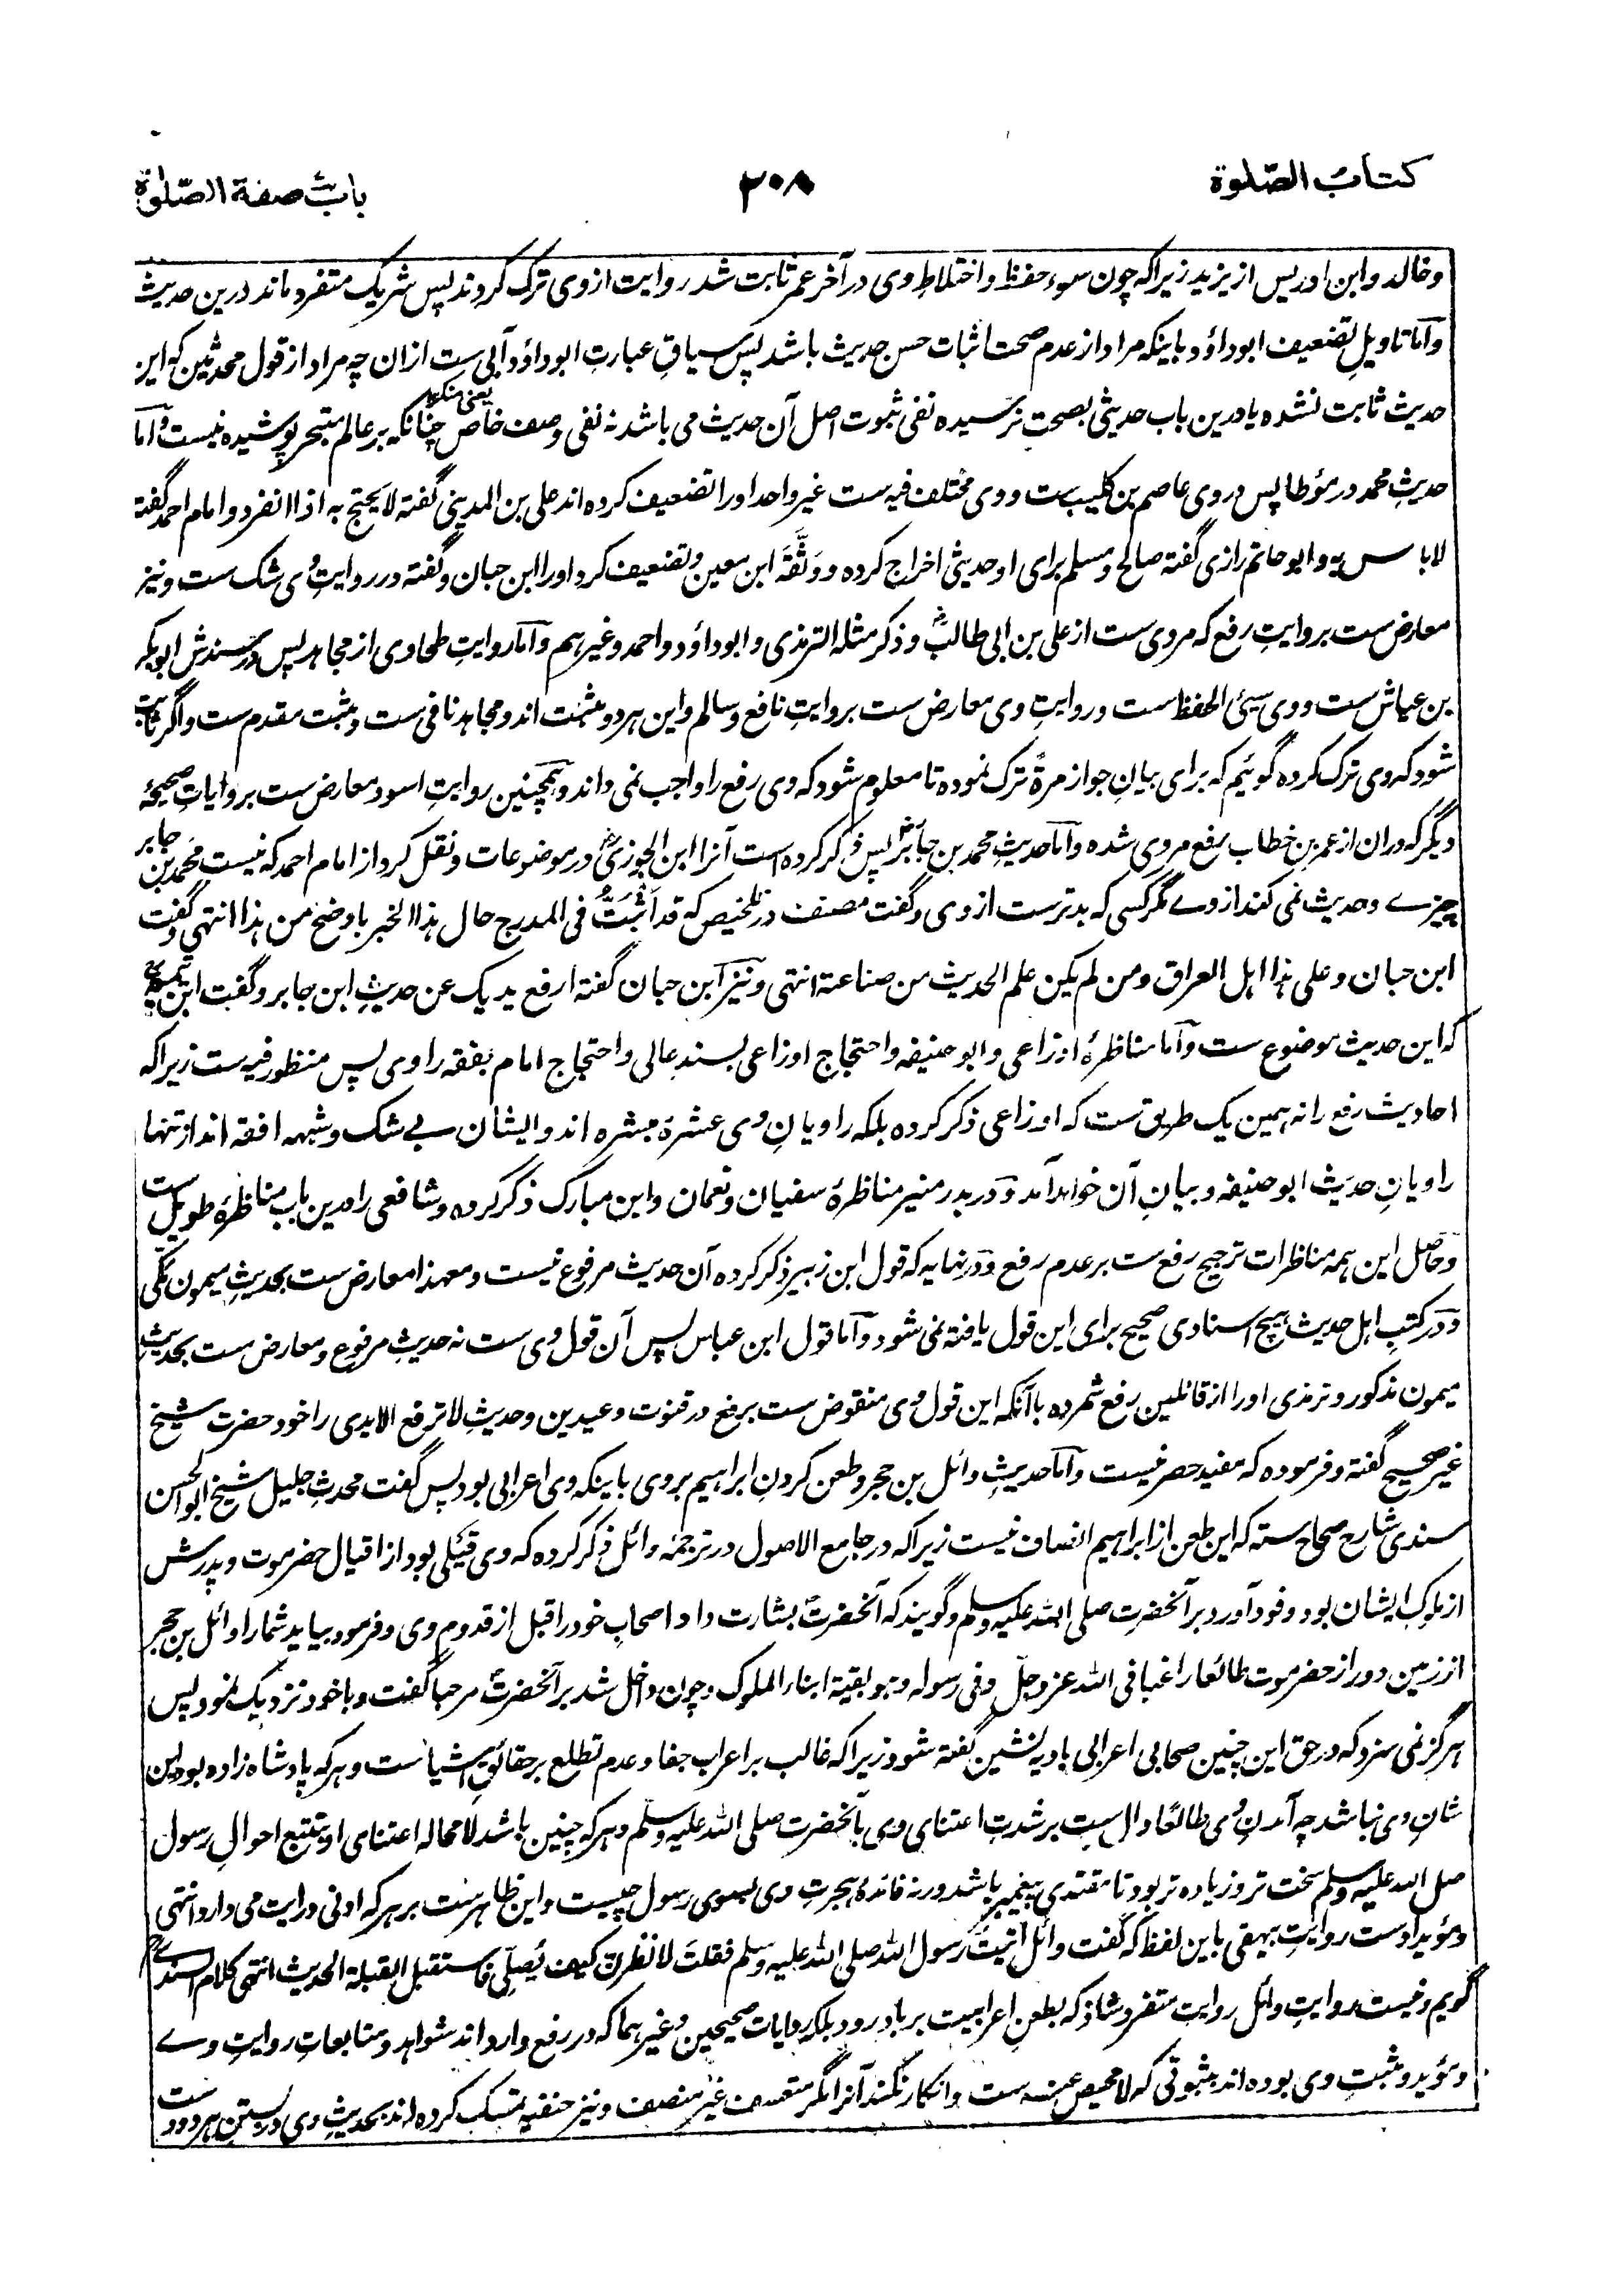 کتاب الصّلوة
۲۰۸
باب صفة الصّلوة
وخالد وابن ادریس از یزید زیراکه چون سوء حفظ و اختلاطِ وی در آخر عمر ثابت شد روایت از وی ترک کردند پس شریک متفرد ماند درین حدیث
وآما تاویلِ تضعیف ابوداؤد باینکه مراد از عدم صحت اثبات حسن حدیث باشد پس سیاقِ عبارتِ ابوداؤد آبی ست ازان چه مراد از قول محدثین که این
حدیث ثابت نشده یا درین باب حدیثی بصحت نرسیده نفی ثبوت اصل آن حدیث می باشد نه نفی وصف خاص چنانکه بر عالم متبحر پوشیده نیست وآما
حدیثِ محمد در مؤطا پس در وی عاصم بن کلیب ست و وی مختلف فیه ست غیر واحد او را تضعیف کرده اند علی بن المدینی گفته لا یحتج به اذا انفرد و امام احمد گفته
لا باس به و ابو حاتم رازی گفته صالح و مسلم برای او حدیثی اخراج کرده و وَثَّقَهُ ابن معین و تضعیف کرد او را ابن حبان و گفته در روایتِ وی شک ست و نیز
معارض ست بروایتِ رفع که مروی ست از علی بن ابی طالب و ذکر مثله الترمذی و ابوداؤد و احمد و غیرهم وآما روایتِ طحاوی از مجاهد پس در سندش ابوبکر
بن عیاش ست و وی سیئ الحفظ ست و روایتِ وی معارض ست بروایتِ نافع و سالم و این هر دو مثبت اند و مجاهد نافی ست و مثبت مقدم ست و اگر ثابت
شود که وی ترک کرده گوئیم که برای بیانِ جواز مرةً ترک نموده تا معلوم شود که وی رفع را واجب نمی داند و همچنین روایتِ اسود معارض ست بروایاتِ صحیحه
دیگر که دران از عمر بن خطاب رفع مروی شده وآما حدیثِ محمد بن جابر پس ذکر کرده است آنرا ابن الجوزی در موضوعات و نقل کرد از امام احمد که نیست محمد بن جابر
چیزے و حدیث نمی کند از وے مگر کسی که بدتر ست از وی و گفت مصنف در تلخیص که قد اَثْبَتُّ فی المدرج حال هذا الخبر باوضح من هذا انتهی و گفت
ابن حبان و علی هذا اهل العراق و من لم یکن علم الحدیث من صناعته انتهی و نیز ابن حبان گفته ارفع یدیک عن حدیثِ ابن جابر و گفت ابن تیمیه
که این حدیث موضوع ست وآما مناظرۂ اوزاعی و ابو حنیفه و احتجاج اوزاعی بسندِ عالی و احتجاج امام بفقه راوی پس منظور فیه ست زیراکه
احادیث رفع را نه همین یک طریق ست که اوزاعی ذکر کرده بلکه راویانِ وی عشرۂ مبشره اند و ایشان بے شک و شبهه افقه اند از تنها
راویانِ حدیث ابو حنیفه و بیانِ آن خواهد آمد و در بدر منیر مناظرۂ سفیان و نعمان و ابن مبارک ذکر کرده و شافعی را درین باب مناظرۂ طویل ست
وحاصل این همه مناظرات ترجیح رفع ست بر عدم رفع و در نهایه که قول ابن زبیر ذکر کرده آن حدیث مرفوع نیست و معهذا معارض ست بحدیثِ میمون مکّی
و در کتبِ اهل حدیث هیچ اسنادی صحیح برای این قول یافته نمی شود وآما قول ابن عباس پس آن قول وی ست نه حدیثِ مرفوع و معارض ست بحدیثِ
میمون مذکور و ترمذی او را از قائلین رفع شمرده باآنکه این قول وی منقوض ست برفع در قنوت و عیدین و حدیثِ لا ترفع الایدی را خود حضرت شیخ
غیر صحیح گفته و فرموده که مفید حصر نیست وآما حدیثِ وائل بن حجر و طعن کردنِ ابراهیم بر وی باینکه وی اعرابی بود پس گفت محدثِ جلیل شیخ ابو الحسن
سندی شارح صحاح سته که این طعن از ابراهیم انصاف نیست زیراکه در جامع الاصول در ترجمهٔ وائل ذکر کرده که وی قَیلی بود از اقیال حضرموت و پدرش
از ملوک ایشان بود وفود آورد بر آنحضرت صلی الله علیه وسلم و گویند که آنحضرت بشارت داد اصحابِ خود را قبل از قدوم وی و فرمود بیاید شما را وائل بن حجر
از زمین دور از حضرموت طائعا راغبا فی الله عز وجلّ و فی رسوله و هو بقیة ابناء الملوک و چون داخل شد بر آنحضرت مرحبا گفت و باخود نزدیک نمود پس
هرگز نمی سزد که در حق این چنین صحابی اعرابی بادیه نشین گفته شود زیراکه غالب بر اعراب جفا و عدم تطلع بر حقائقِ اشیا ست و هرکه پادشاه زاده بود این
شانِ وی نباشد چه آمدنِ وی طائعا دال ست بر شدتِ اعتنای وی بآنحضرت صلی الله علیه وسلم و هرکه چنین باشد لا محاله اعتنای او بتتبع احوالِ رسول
صلی الله علیه وسلم سخت تر و زیاده تر بود تا مقتدی پیغمبر باشد ورنه فائدۂ هجرتِ وی بسوی رسول چیست و این ظاهر ست بر هرکه ادنی درایت می دارد انتهی
و مؤید اوست روایتِ بیهقی باین لفظ که گفت وائل اتیت رسول الله صلی الله علیه وسلم فقلت لانظرن کیف یُصلّی فاستقبل القبلة الحدیث انتهی کلام السندے
گویم و نیست روایتِ وائل روایت متفرد شاذ که بطعنِ اعرابیت برباد رود بلکه روایات صحیحین و غیرهما که در رفع وارد اند شواهد و متابعاتِ روایتِ وے
و مؤید و مثبتِ وی بوده اند بثبوتی که لا محیص عنه ست و انکار نکند آنرا مگر متعسف غیر منصف و نیز حنفیه تمسک کرده اند بحدیثِ وی در بستن هر دو دست